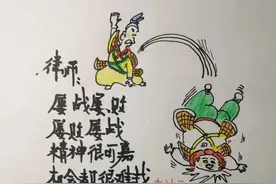 律师：
屡战屡败
屡败屡战
精神很可嘉
社会却很难找